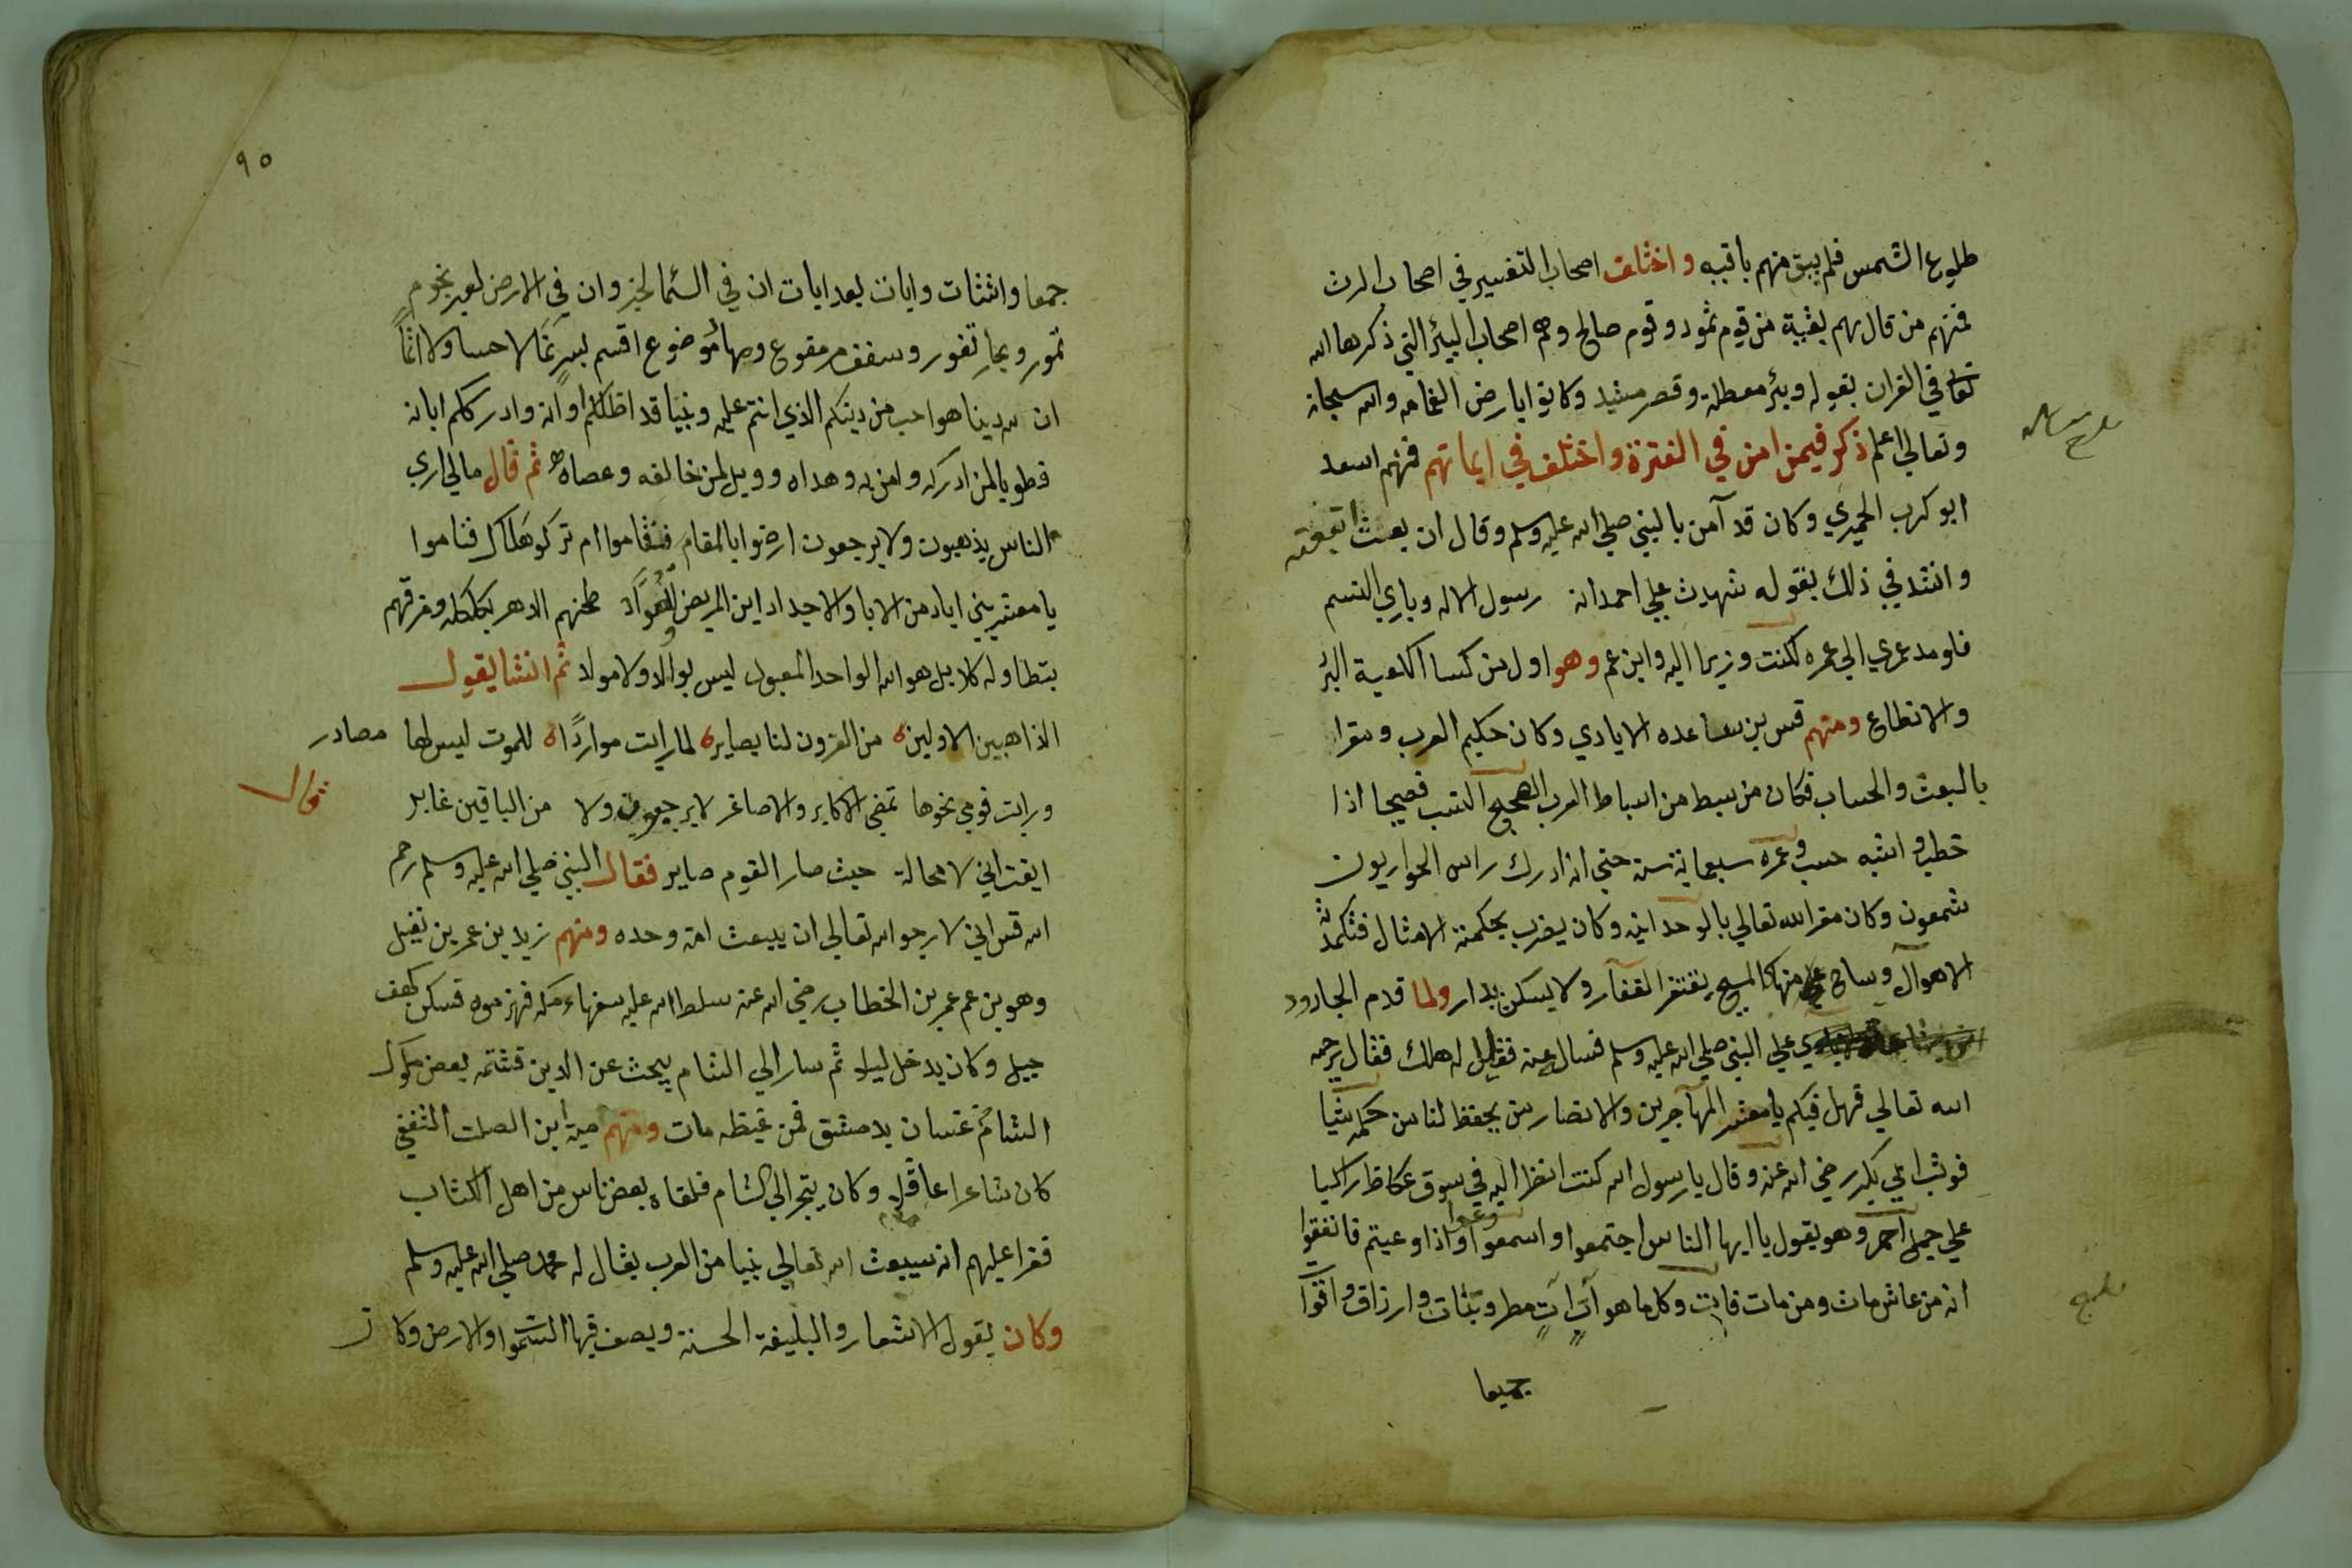 طلوع الشمس فلم يبق منهم باقيه واختلف اصحاب التفسير في اصحاب الرث
فمنهم من قال هم بقية من قوم ثمود وقوم صالح وهم اصحاب البئر التي ذكرها الله
تعالي في القران بقوله وبئر معطلة وقصر مشيد وكانوا بارض اليمامه والله سبحانه
وتعالي اعلم ذكر فيمن امن في الفترة واختلف في ايمانهم فمنهم اسعد
ابو كرب الحميري وكان قد آمن بالنبي صلي الله عليه وسلم وقال ان بعث اتبعته
وانشد في ذلك بقوله شهدت علي احمد انه رسول الاله وباري النسم
فلو مد عمري الي عمره لكنت وزيرا اليه وابن عم وهو اول من كسا الكعبة البرُ
والانطاع ومنهم قس بن ساعده الايادي وكان حكيم العرب ومقرا
بالبعث والحساب فكان من سبط من اسباط العرب الصحيح النسب فصيحا اذا
خطب واشبه حسب وعمره سبعماية سنه حتي انه ادرك راس الحواريون
شمعون وكان مقرا لله تعالي بالوحدانيه وكان يضرب بحكمته الامثال
الاهوآل وساح علي منهاكا المسيح يفتقر القفآر ولا يسكن بدار ولما قدم الجارود
علي النبي صلي الله عليه وسلم فسال عنه فقيل له هلك فقال يرحمه
الله تعالي فهل فيكم يا معشر المهآجرين والانصار من يحفظ لنا من حكمه شيا
فوثب ابي بكر رضي الله عنه وقال يا رسول الله كنت انظر اليه في سوق عكاظ راكبا
علي جمل احمر وهو يقول يا ايها الناس اجتمعوا واسمعوا وعوا واذا وعيتم فانتفقوا
انه من عاش مات ومن مات فات وكل ما هو آت آت مطر ونبات وارزاق واقوا
جميعا
٩٥
جمعا واشتات وايات بعد ايات ان في السما لخبر وان في الارض لعبر نجوم
تمور وبحار تفور وسقف مرفوع ومهاد موضوع اقسم
ان لله دينا هو احب من دينكم الذي انتم عليه ونبيا قد اظلكم اوانه وادرككم ابانه
فطوبا لمن ادركه وامن به وهداه وويل لمن خالفه وعصاه ثم قال مالي اري
الناس يذهبون ولا يرجعون ارضوا بالمقام فقاموا ام تركو هناك فناموا
يا معشر بني اياد من الابا والاجداد اين المريض والعوَّاد طحنهم الدهر بكلكله ومزقهم
بتطاوله كلا بل هو الله الواحد المعبود ليس بوالد ولا مولد ثم انشا يقول
الذاهبين الاولين من القرون لنا بصاير لما رايت مواردًا للموت ليس لها مصادر
ورايت قومي نحوها تمضي الاكابر والاصاغر لا يرجعون ولا من الباقين غابر
ايقنت اني لا محالة حيث صار القوم صاير فقال النبي صلي الله عليه وسلم رحم
الله قس اني لارجو الله تعالي ان يبعث امة وحده ومنهم زيد بن عمر بن نفيل
وهو بن عم عمر بن الخطاب رضي الله عنه سلط الله عليه سفهاء مكه فهزموه فسكن كهف
جبل وكان يدخل ليلا ثم سار الي الشام يبحث عن الدين فشتمه بعض ملوك
الشام غسان بدمشق فمن غيظه مات ومنهم امية ابن الصلت الثقفي
كان شاعرا عاقل وكان يتجر الي الشام فلقاه بعض ناس من اهل الكتاب
فقرا عليهم انه سيبعث الله تعالي نبيا من العرب يقال له محمد صلي الله عليه وسلم
وكان يقول الاشعار والبليغة الحسنة ويصف فيها السموا والارض وكا